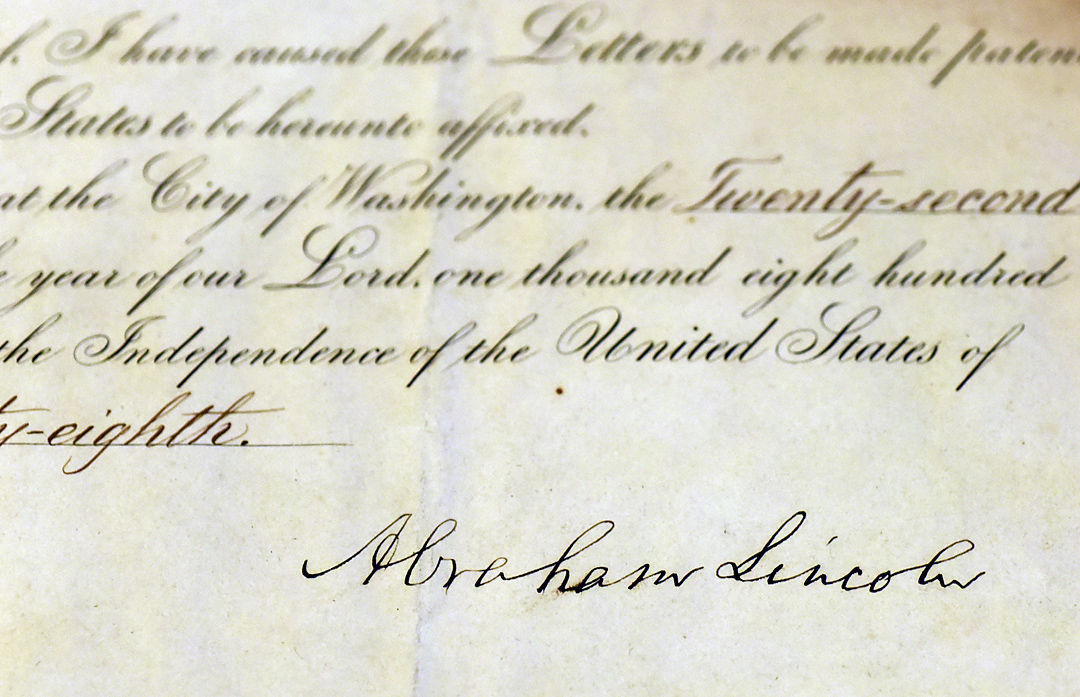 f. I have caused these Letters to be made paten
States to be hereunto affixed.
at the City of Washington, the Twenty-second
e year of our Lord, one thousand eight hundred
the Independence of the United States of
ty-eighth.
Abraham Lincoln